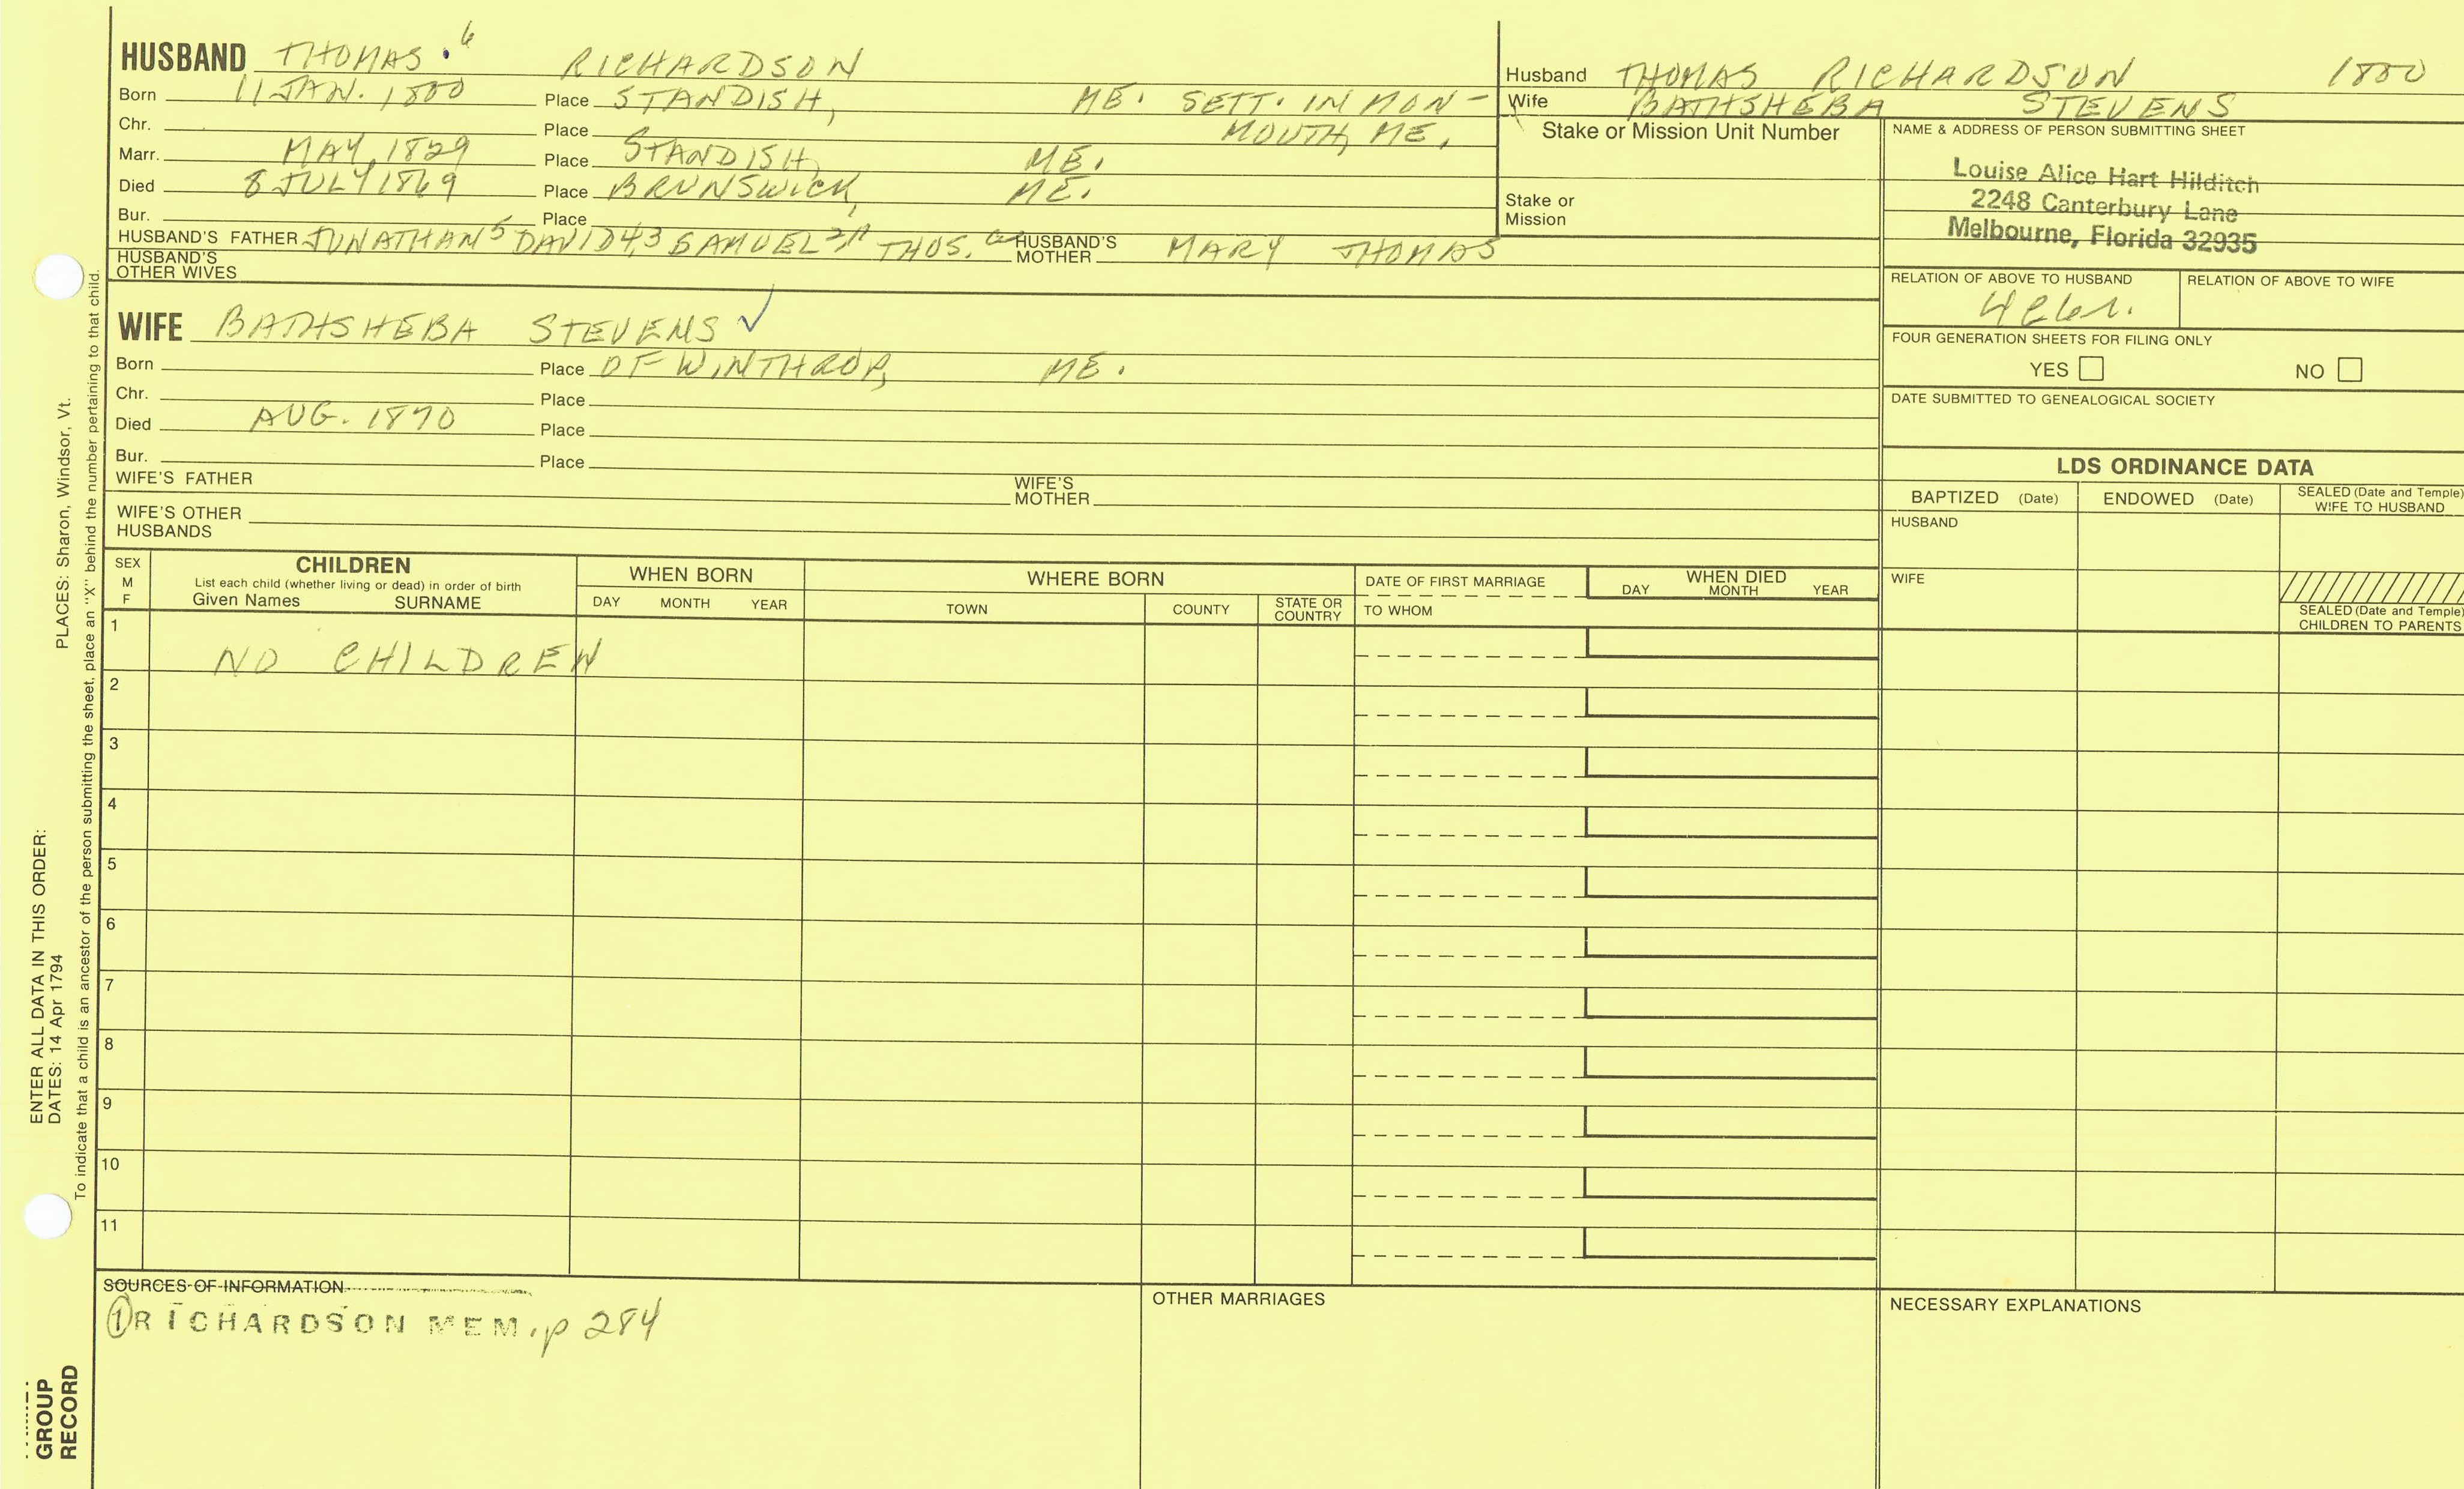 HUSBAND THOMAS 6 RICHARDSON
Born 11 JAN. 1800 Place STANDISH, ME. SETT. IN MON-
Chr. Place MOUTH, ME.
Marr. MAY, 1829 Place STANDISH, ME.
Died 8 JULY 1869 Place BRUNSWICK, ME.
Bur. Place
HUSBAND'S FATHER JONATHAN 5 DAVID 4,3 SAMUEL THOS. HUSBAND'S MOTHER MARY THOMAS
HUSBAND'S OTHER WIVES
WIFE BATHSHEBA STEVENS ✓
Born Place OF WINTHROP, ME.
Chr. Place
Died AUG. 1870 Place
Bur. Place
WIFE'S FATHER WIFE'S MOTHER
WIFE'S OTHER HUSBANDS
Husband THOMAS RICHARDSON 1800
Wife BATHSHEBA STEVENS
Stake or Mission Unit Number
Stake or
Mission
NAME & ADDRESS OF PERSON SUBMITTING SHEET
Louise Alice Hart Hilditch
2248 Canterbury Lane
Melbourne, Florida 32935
RELATION OF ABOVE TO HUSBAND RELATION OF ABOVE TO WIFE
FOUR GENERATION SHEETS FOR FILING ONLY
YES NO
DATE SUBMITTED TO GENEALOGICAL SOCIETY
LDS ORDINANCE DATA
BAPTIZED (Date) ENDOWED (Date) SEALED (Date and Temple) WIFE TO HUSBAND
HUSBAND
WIFE
SEALED (Date and Temple)
CHILDREN TO PARENTS
SEX M F
CHILDREN
List each child (whether living or dead) in order of birth
Given Names SURNAME
WHEN BORN
DAY MONTH YEAR
WHERE BORN
TOWN COUNTY STATE OR COUNTRY
DATE OF FIRST MARRIAGE
TO WHOM
WHEN DIED
DAY MONTH YEAR
1 NO CHILDREN
2
3
4
5
6
7
8
9
10
11
SOURCES OF INFORMATION
① RICHARDSON MEM., p 284
OTHER MARRIAGES
NECESSARY EXPLANATIONS
ENTER ALL DATA IN THIS ORDER:
DATES: 14 Apr 1794 PLACES: Sharon, Windsor, Vt.
To indicate that a child is an ancestor of the person submitting the sheet, place an "X" behind the number pertaining to that child.
GROUP
RECORD